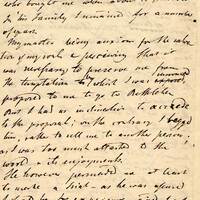 who bought me when about
in his family I remained for a number
of years.
My master being anxious for the salva-
tion of my soul & perceiving that it
was necessary to preserve me from
the temptation to which I was exposed,
proposed to me to go to Bethlehem.
But I had no inclination to accede
to the proposal; on the contrary I begged
him, rather to sell me to another person,
as I was too much attached to the
world & its enjoyments.
He however persuaded me at least
to make a trial – as he was